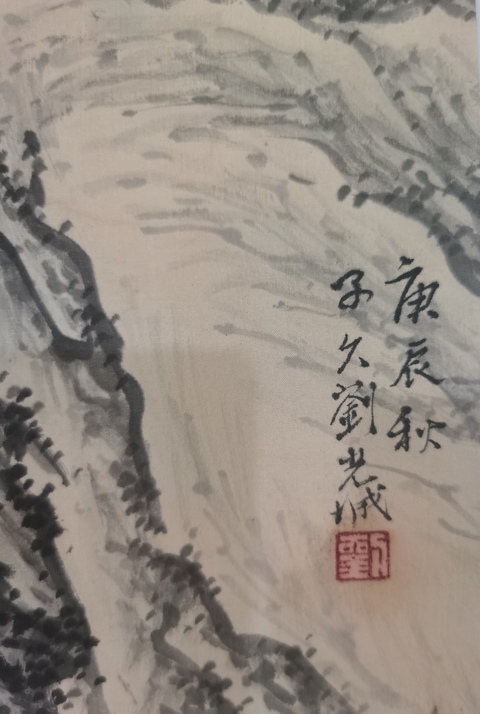 庚辰秋
子久劉光城
劉